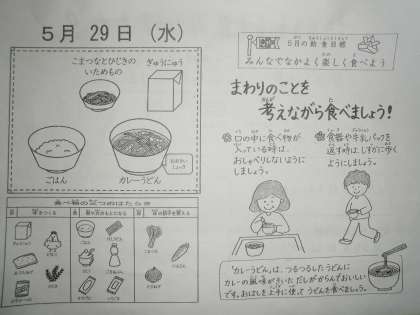 5月 29日 (水)
こまつなとひじきの
いためもの
ぎゅうにゅう
ごはん
カレーうどん
5月の給食目標
みんなでなかよく楽しく食べよう
まわりのことを
考えながら食べましょう!
口の中に食べ物が
入っている時は、
おしゃべりしないように
しましょう。
食器や牛乳パックを
返す時は、しずかに歩く
ようにしましょう。
食べ物の三つのはたらき
「カレーうどん」は、つるつるしたうどんに
カレーの風味がきいただしがからんでおいしい
です。おはしを上手に使ってうどんを食べましょう。